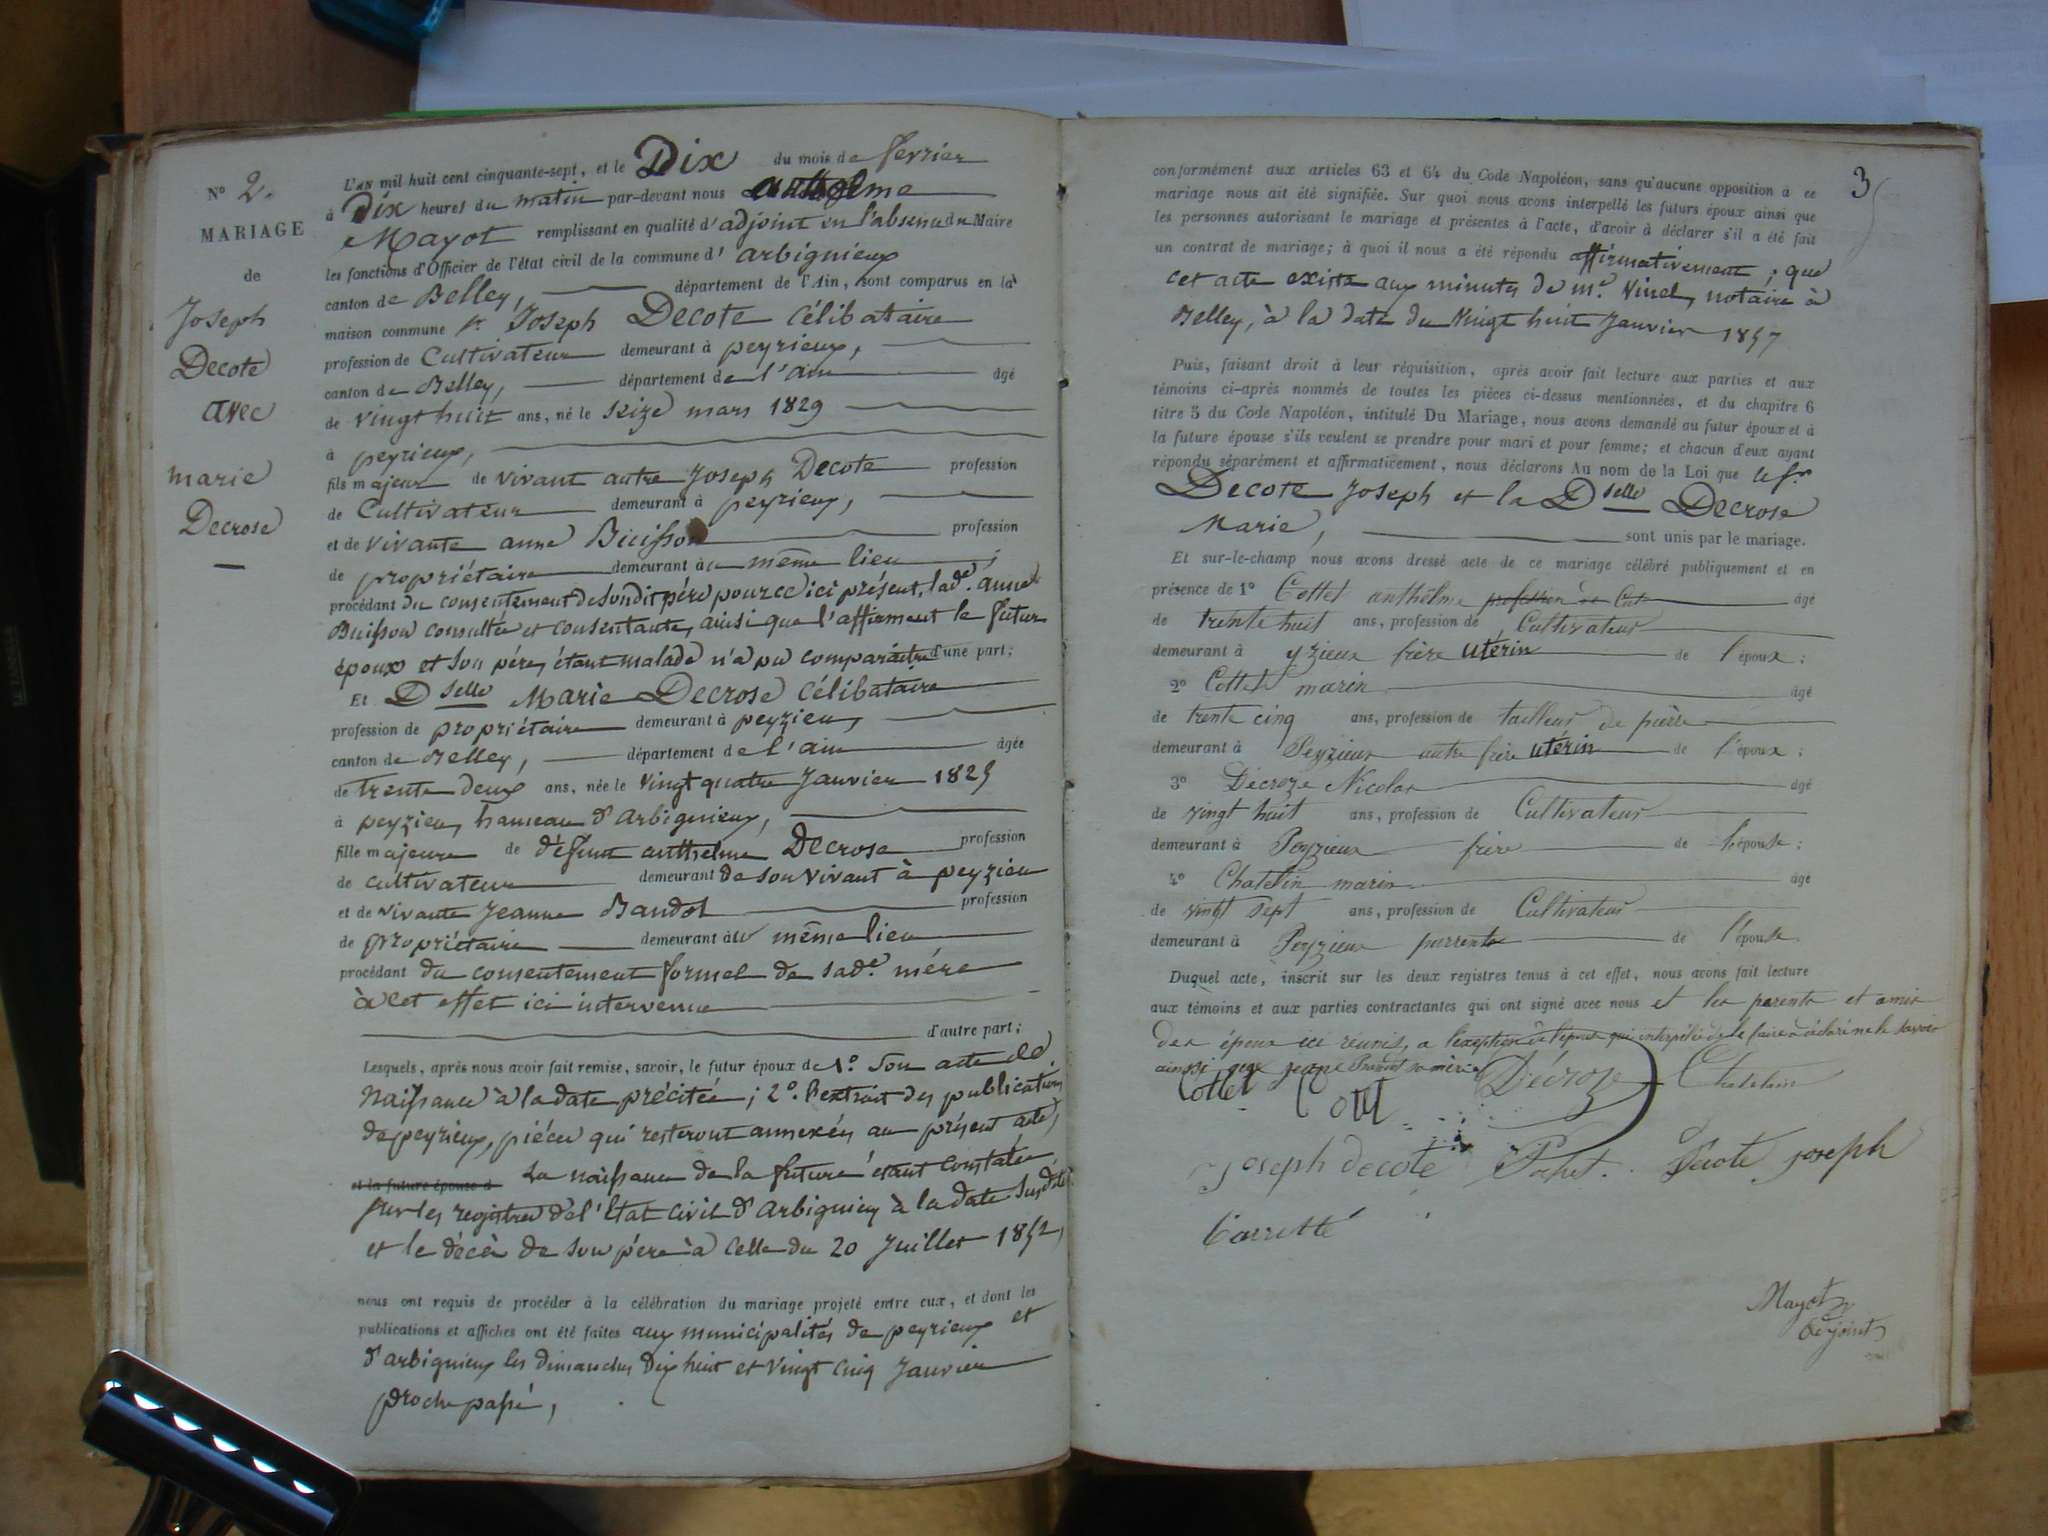 N° 2.
MARIAGE
de
Joseph
Decote
avec
marie
Decrose
L'an mil huit cent cinquante-sept, et le Dix du mois de fevrier
à Dix heures du matin par-devant nous anthelme
Mayot remplissant en qualité d'adjoint en l'absence du Maire
les fonctions d'Officier de l'état civil de la commune d'arbignieux
canton de Belley, département de l'Ain, sont comparus en la
maison commune sr Joseph Decote Célibataire
profession de Cultivateur demeurant à peyrieux,
canton de Belley, département de l'ain âgé
de vingt huit ans, né le seize mars 1829
à peyrieux,
fils majeur de vivant autre Joseph Decote profession
de Cultivateur demeurant à peyrieux,
et de vivante anne Buisson profession
de propriétaire demeurant au même lieu
procédant du consentement de son dit père pour ce ici présent, lade anne
Buisson consultée et consentante, ainsi que l'affirment le futur
époux et son père, étant malade n'a pu comparaitre d'une part;
Et Dselle Marie Decrose Célibataire
profession de propriétaire demeurant à peyzieu,
canton de Belley, département de l'ain âgée
de trente deux ans, née le vingt quatre Janvier 1825
à peyzieu, hameau d'arbignieux,
fille majeure de défunt anthelme Decrose profession
de cultivateur demeurant de son vivant à peyzieu
et de vivante Jeanne Bandot profession
de propriétaire demeurant au même lieu
procédant du consentement formel de sade mère
à cet effet ici intervenue
d'autre part;
Lesquels, après nous avoir fait remise, savoir, le futur époux de 1° Son acte de
Naissance à la date précitée; 2° l'extrait des publications
de peyrieux, pièces qui resteront annexées au présent acte,
et la future épouse d La naissance de la future étant constatée
sur les registres de l'Etat civil d'arbignieu à la date susdite
et le décès de son père à celle du 20 Juillet 1852,
nous ont requis de procéder à la célébration du mariage projeté entre eux, et dont les
publications et affiches ont été faites aux municipalités de peyrieux et
d'arbignieux les dimanches dix huit et vingt cinq Janvier
proche passé,
3
conformément aux articles 63 et 64 du Code Napoléon, sans qu'aucune opposition à ce
mariage nous ait été signifiée. Sur quoi nous avons interpellé les futurs époux ainsi que
les personnes autorisant le mariage et présentes à l'acte, d'avoir à déclarer s'il a été fait
un contrat de mariage; à quoi il nous a été répondu affirmativement; que
cet acte existe aux minutes de me. Vinel, notaire à
Belley, à la date du Vingt huit Janvier 1857
Puis, faisant droit à leur réquisition, après avoir fait lecture aux parties et aux
témoins ci-après nommés de toutes les pièces ci-dessus mentionnées, et du chapitre 6
titre 5 du Code Napoléon, intitulé Du Mariage, nous avons demandé au futur époux et à
la future épouse s'ils veulent se prendre pour mari et pour femme; et chacun d'eux ayant
répondu séparément et affirmativement, nous déclarons Au nom de la Loi que le sr
Decote Joseph et la Dselle Decrose
Marie, sont unis par le mariage.
Et sur-le-champ nous avons dressé acte de ce mariage célébré publiquement et en
présence de 1° Cottet anthelme profession de Cult âgé
de trente huit ans, profession de Cultivateur
demeurant à yzieux frère utérin de l'épouse;
2° Cottet marin âgé
de trente cinq ans, profession de tailleur de pierre
demeurant à Peyzieux autre frère utérin de l'épouse;
3° Decroze Nicolas âgé
de vingt huit ans, profession de Cultivateur
demeurant à Peyzieux frère de l'épouse;
4° Chatelin marin âgé
de vingt sept ans, profession de Cultivateur
demeurant à Peyzieux parrente de l'épouse.
Duquel acte, inscrit sur les deux registres tenus à cet effet, nous avons fait lecture
aux témoins et aux parties contractantes qui ont signé avec nous et les parents et amis
des époux ici reunis, a l'exeption de l'épouse qui interpélée de le faire a déclaré ne le savoir
ainsi que jeane sa mère
Cottet Cottet Décroze Chatelain
Joseph decote Pochet. Decote joseph
Mayot
adjoint